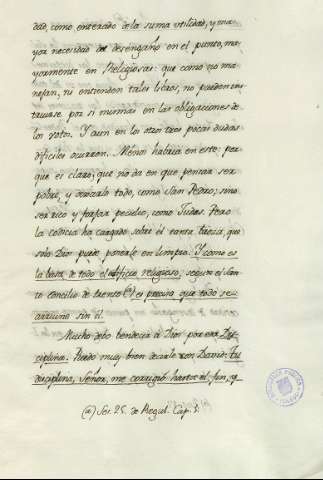 dad, como enterado de la suma utilidad, y ma-
yor necesidad del desengaño en el punto, ma-
yormente en Religiosas: que como no ma-
nejan, ni entienden tales libros, no pueden ins-
truirse por si mismas en las obligaciones de
los votos. Y aun en los otros tres pocas dudas
dificiles ocurren. Menos habria en este: por-
que es claro; que no da en que pensar ser
pobre, y dexarlo todo, como San Pedro; sino
ser rico y forjar peculio, como Judas. Pero
la codicia ha cargado sobre él tanta broza, que
solo Dios puede ponerle en limpio. Y como es
la basa de todo el edificio religioso, segun el San-
to Concilio de Trento (a) es preciso que todo se
arruine sin él.
Mucho debo bendecir a Dios por esa Dis-
ciplina. Puedo muy bien decirle con David: Tu
disciplina, Señor, me corrigió hasta el fin, y
(a) Ses. 25. de Regul. Cap. 1.